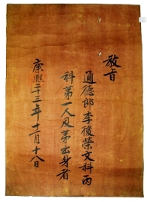 教旨
通德郎李後榮文科丙
科第一人及第出身者
康熙二十三年十一月十八日